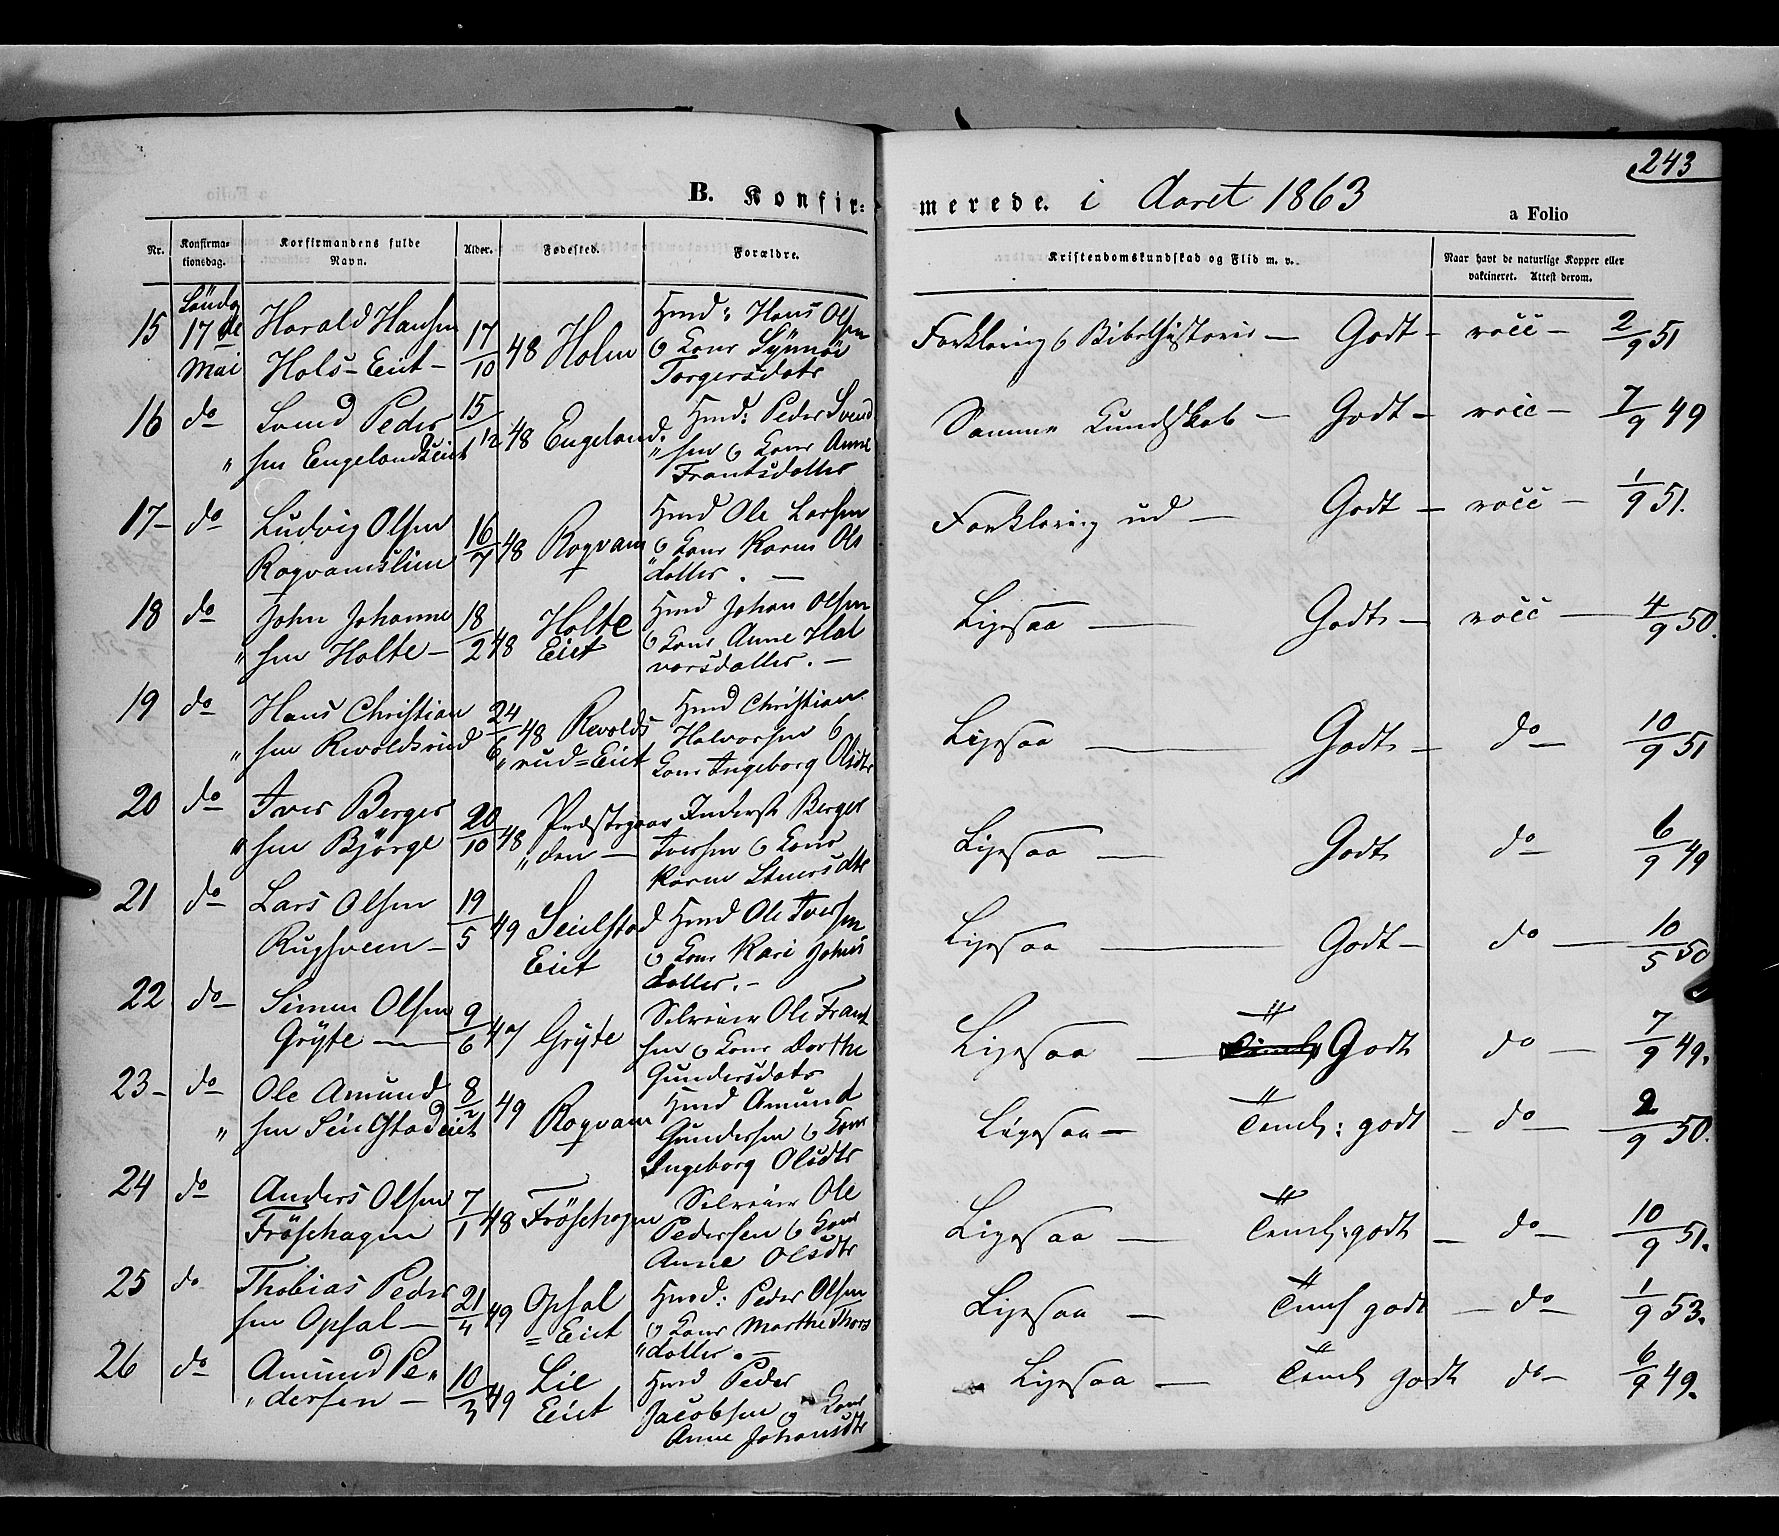 243
B. Konfir-
merede. i Aaret 1863
a Folio
Nr.
Konfirma-
tionsdag.
Konfirmandens fulde
Navn.
Alder.
Fødested.
Forældre.
Kristendomskundskab og Flid m. v.
Naar havt de naturlige Kopper eller
vaktineret. Attest derom.
15 Söndg 17de Mai Harald Hansen Hols-Eiet - 17/10 48 Holm Hmd: Hans Olsen & Kone Synnöv Torgersdatr Forklaring & Bibelhistorie - Godt - vacc - 2/9 51
16 do Svend Peder „sen Engelandseiet 15/12 48 Engeland. Hmd: Peder Svend „sen & Kone Anne Frantsdatter Samme Kundskab - Godt - vacc - 7/9 49
17- do Ludvig Olsen Rogvamslien 16/7 48 Rogvam Hmd Ole Larsen & Kone Karen Ols „datter. - Forklaring ud - Godt - vacc - 1/9 51.
18 do John Johanne „sen Holte - 18/2 48 Holte Eiet Hmd Johan Olsen & Kone Anne Hal vorsdatter. - Ligesaa - Godt - vacc - 4/9 50.
19 do Hans Christian „sen Revoldsrud 24/6 48 Revolds „rud=Eiet Hmd Christian Halvorsen & Kone Ingeborg Olsdtr Ligesaa - Godt - do - 10/9 51
20 do Iver Berger „sen Björge 20/10 48 Præstegaar „den - Inderst Berger Iversen & Kone Karen Steersdtr Ligesaa - Godt do 6/9 49
21 do Lars Olsen Rugsveen - 19/5 49 Seielstad Eiet Hmd Ole Iversen & Kone Kari Johns datter. - Ligesaa - Godt - do - 10/5 50
22 do Simen Olsen Gryte - 9/6 47 Gryte Selveier Ole Frant sen & Kone Dorthe Gundersdatr Ligesaa - Godt do - 7/9 49.
23- do Ole Amund „sen Seielstadeiet 8/2 49 Rogvam Hmd Amund Gundersen & Kone Ingeborg Olsdtr Ligesaa - Teml: godt - do - 2/9 50.
24 do Anders Olsen Fröshagen 7/1 48 Fröshagen Selveier Ole Pedersen & Kone Anne Olsdtr Ligesaa - Teml: godt - do - 10/9 51.
25 do Thobias Peder sen Opsal - 21/4 49 Opsal = Eiet Hmd: Peder Olsen & Kone Marthe Thors „datter. - Ligesaa - Teml godt - do - 1/9 53.
26 do Amund Pe„ „dersen - 10/3 49 Lie Eiet Hmd Peder Jacobsen & Kone Anne Johansdtr Ligesaa - Teml godt do - 6/9 49.